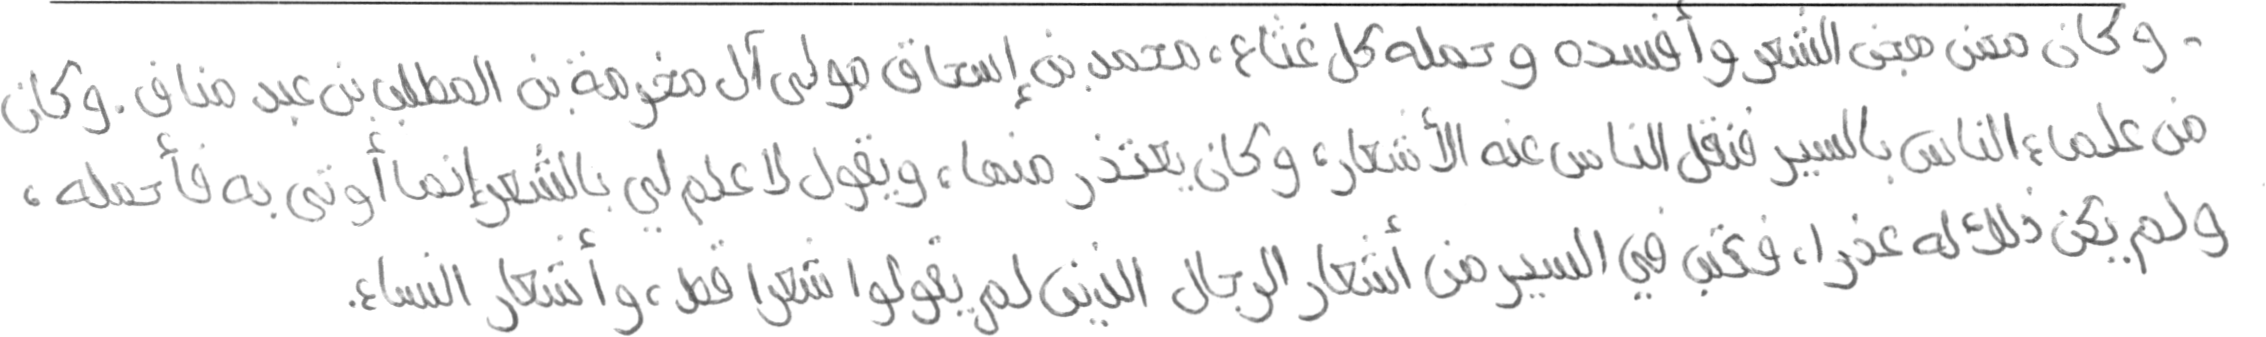 - وكان ممن هجن الشعر وأفسده وحمله كل غثاء، محمد بن إسحاق مولى آل مخرمة بن المطلب بن عبد مناف. وكان
من علماء الناس بالسير فنقل الناس عنه الأشعار، وكان يعتذر منها، ويقول لا علم لي بالشعر إنما أوتى به فأحمله،
ولم يكن ذلك له عذرا، فكتب في السير من أشعار الرجال الذين لم يقولوا شعرا قط، وأشعار النساء.